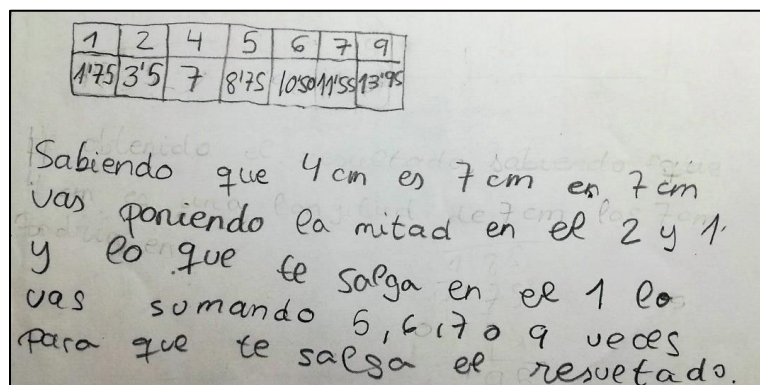 1 2 4 5 6 7 9
1'75 3'5 7 8'75 10'50 11'55 13'95
Sabiendo que 4 cm es 7 cm en 7 cm
vas poniendo la mitad en el 2 y 1.
y lo que te salga en el 1 lo
vas sumando 5, 6, 7 o 9 veces
para que te salga el resuetado.